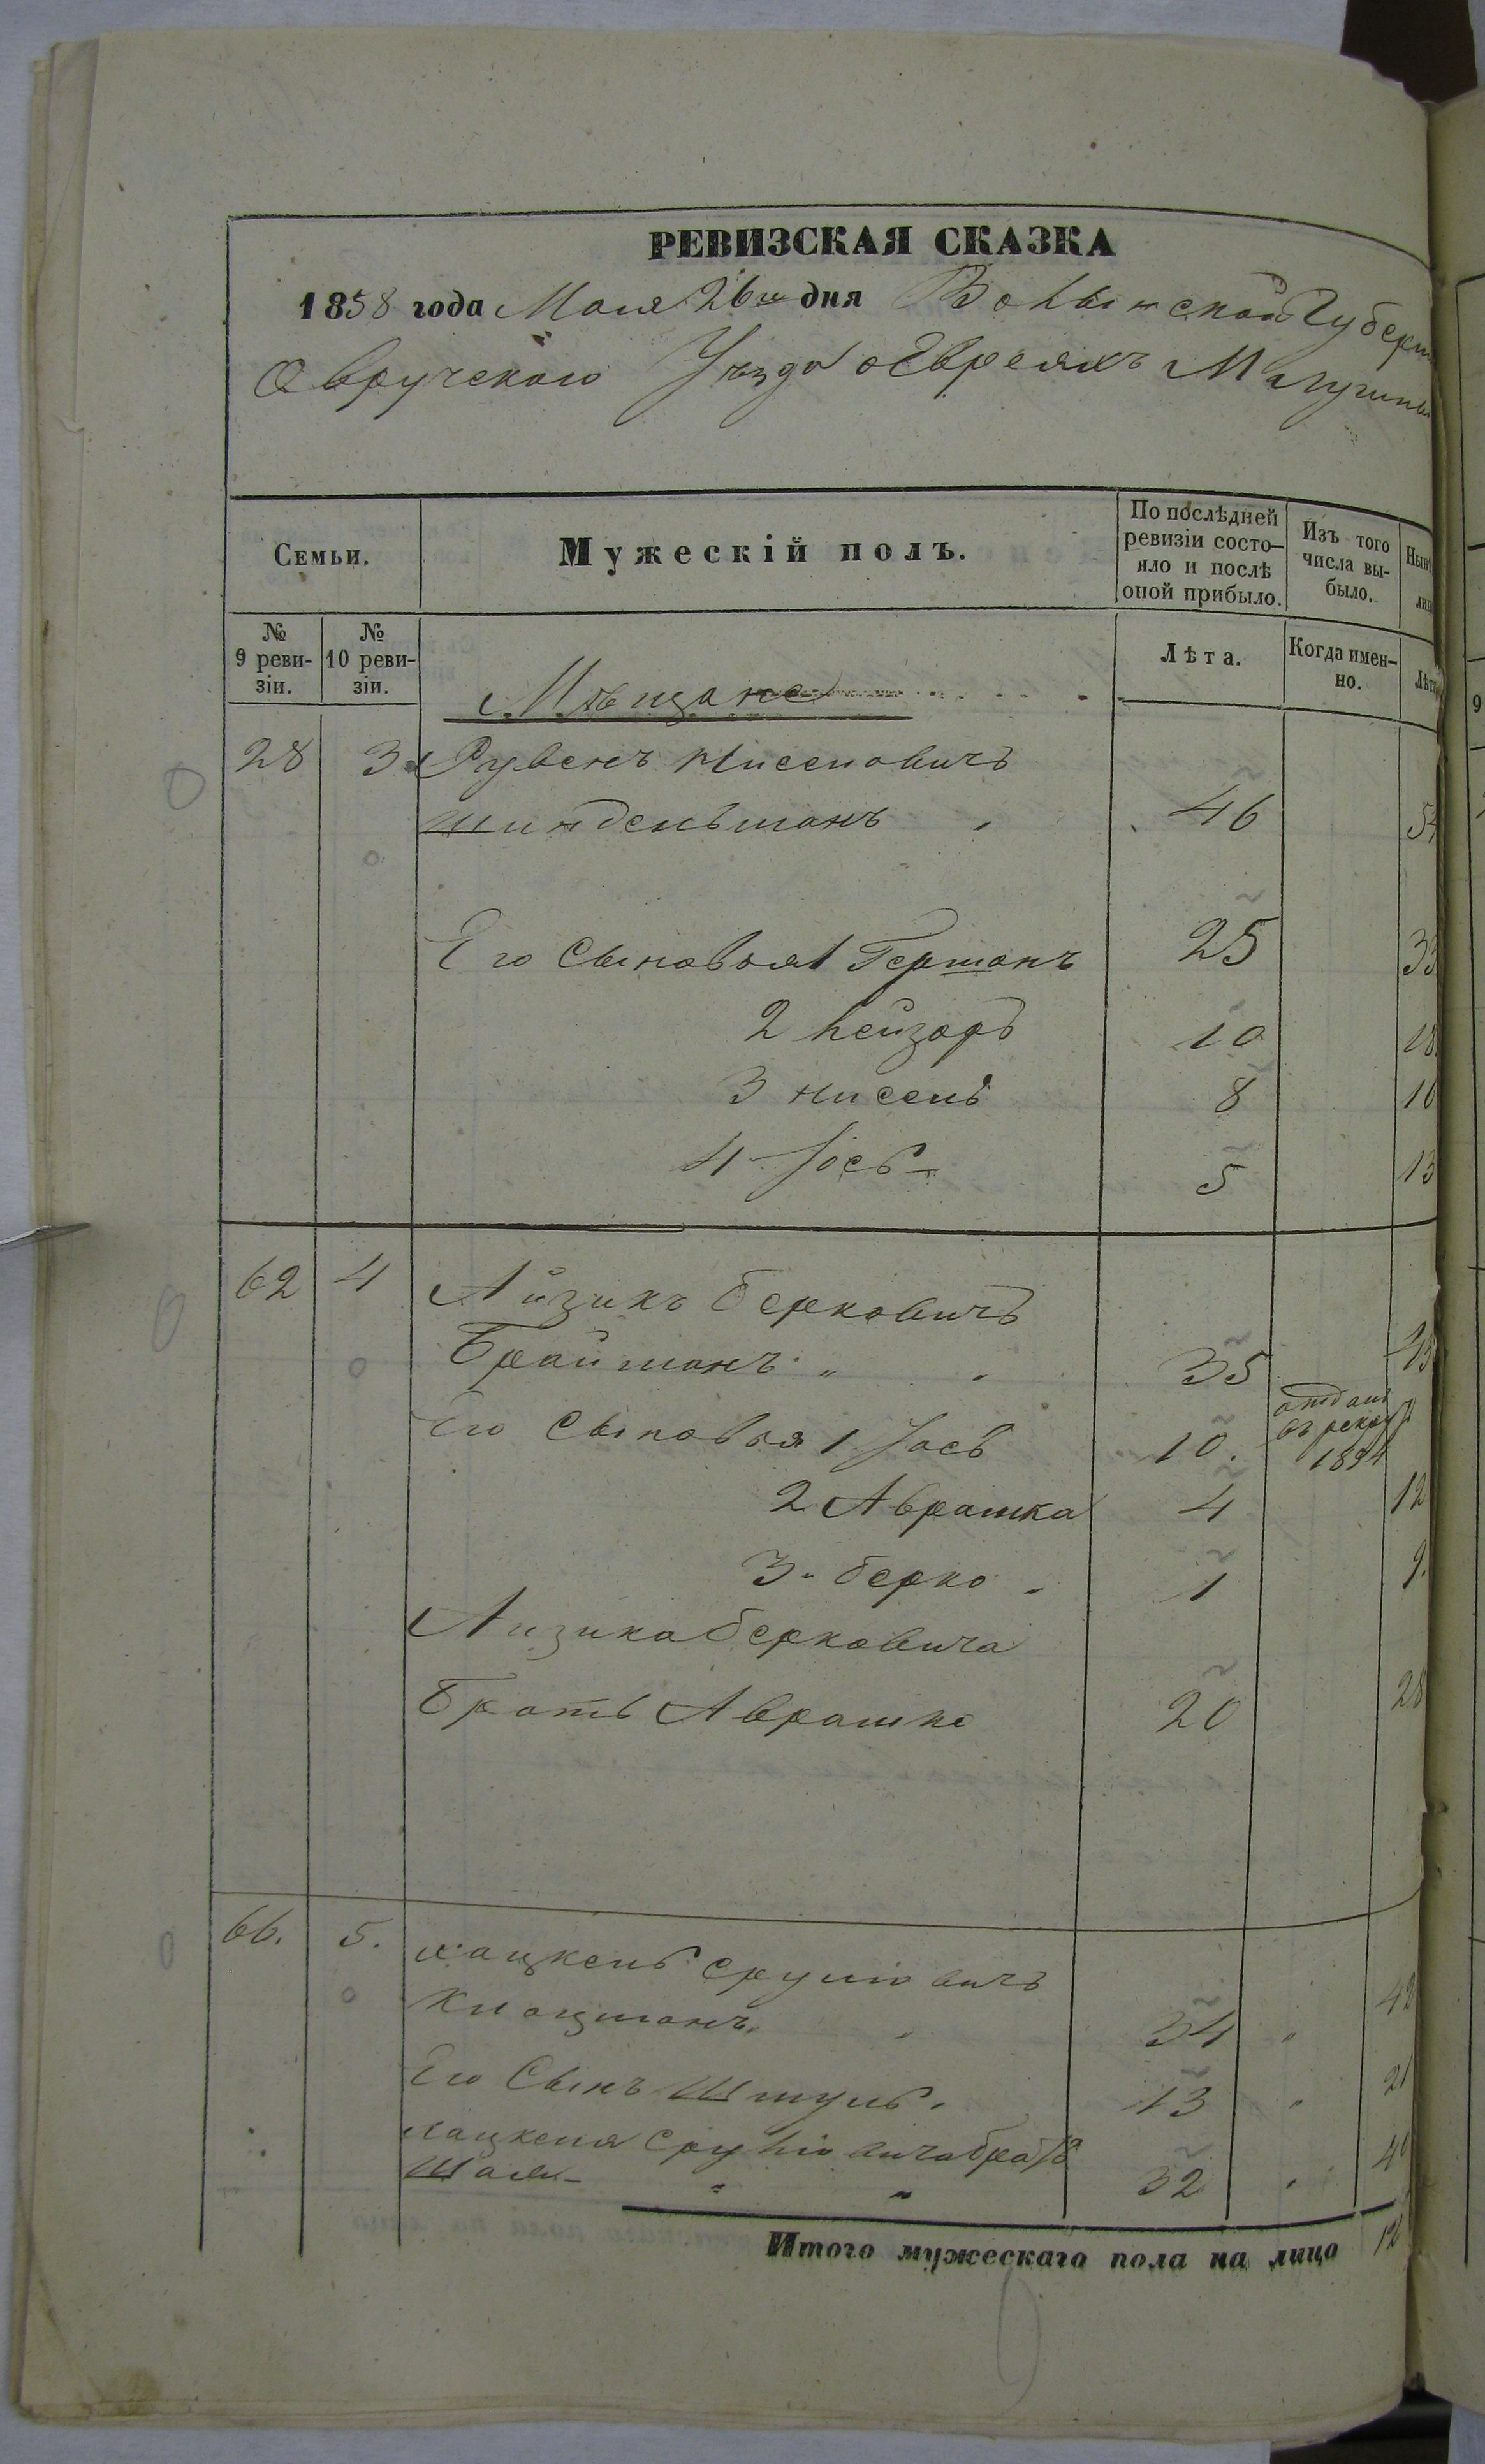 РЕВИЗСКАЯ СКАЗКА
1858 года Мая 26го дня Волынской Губерн
Овручского Уезда о Евреяхъ М Лугины
Семьи.
Мужескій полъ.
По послѣдней ревизіи состо-яло и послѣ оной прибыло.
Изъ того числа вы-было.
№ 9 реви-зіи.
№ 10 реви-зіи.
Лѣта.
Когда имен-но.
Лѣт
Мѣщане
28 3 Рувенъ Нисеновичъ
Шиндельманъ 46 54
Его Сыновья 1 Гершанъ 25 33
2 Лейзоръ 10 18
3 Нисень 8 16
4 Іось 5 13
62 4 Айзикъ Берковичъ
Брайманъ 35 43
Его Сыновья 1 Іось 10. отдан въ рекр 1854
2 Аврашка 4 12
3. Берко 1 9.
Аизика Берковича
Братъ Аврашка 20 28
66. 5. Хацкель Сруліовичъ
Клоцманъ 34 42
Его Сынъ Шмуль 13 21
Хацкеля Сруліовича братъ
32 40
Итого мужескаго пола на лицо 12